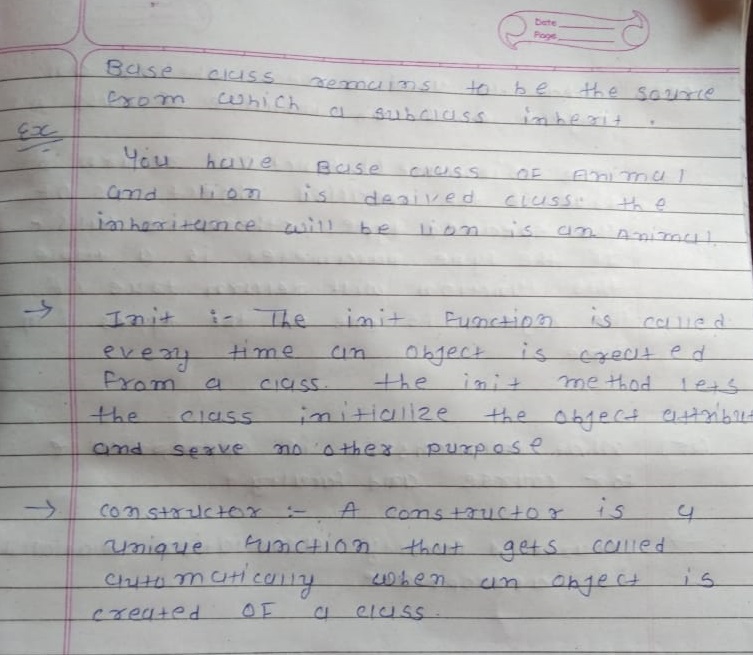 Date
Page
Base class remains to be the source
from which a subclass inherit.
Ex
You have Base class of Animal
and lion is derived class. the
inheritance will be lion is an Animal.
→ Init :- The init Function is called
every time an object is created
From a class. the init method lets
the class initialize the object attribut
and serve no other purpose
→ constructor :- A constructor is a
unique function that gets called
automatically when an object is
created OF a class.